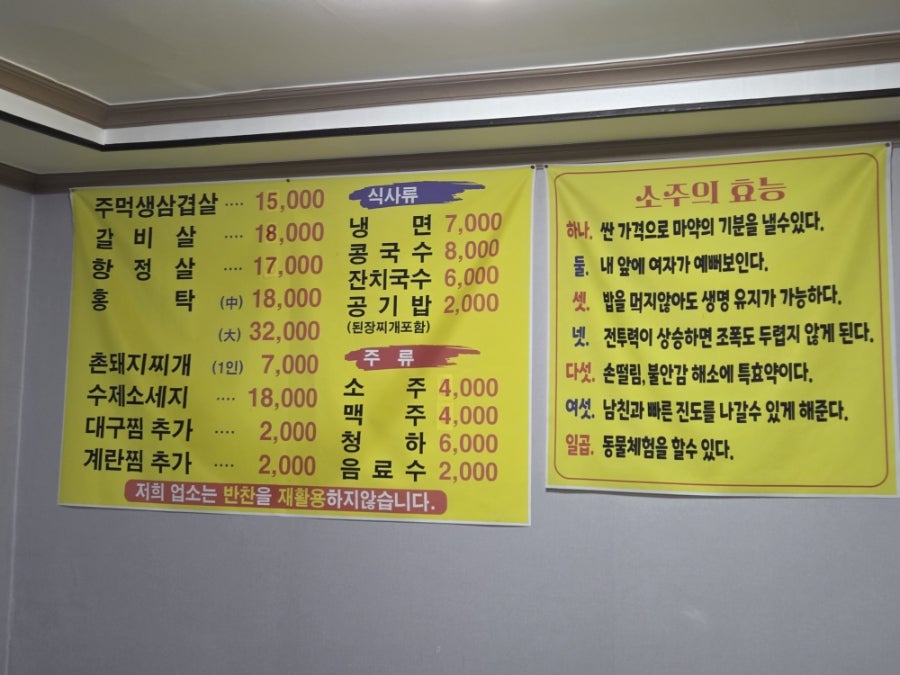 주먹생삼겹살 .... 15,000
갈비살 .... 18,000
항정살 .... 17,000
홍탁 (中) 18,000
(大) 32,000
촌돼지찌개 (1인) 7,000
수제소세지 .... 18,000
대구찜 추가 .... 2,000
계란찜 추가 .... 2,000
식사류
냉면 7,000
콩국수 8,000
잔치국수 6,000
공기밥 2,000
(된장찌개포함)
주류
소주 4,000
맥주 4,000
청하 6,000
음료수 2,000
저희 업소는 반찬을 재활용하지않습니다.
소주의 효능
하나. 싼 가격으로 마약의 기분을 낼수있다.
둘. 내 앞에 여자가 예뻐보인다.
셋. 밥을 먹지않아도 생명 유지가 가능하다.
넷. 전투력이 상승하면 조폭도 두렵지 않게 된다.
다섯. 손떨림, 불안감 해소에 특효약이다.
여섯. 남친과 빠른 진도를 나갈수 있게 해준다.
일곱. 동물체험을 할수 있다.